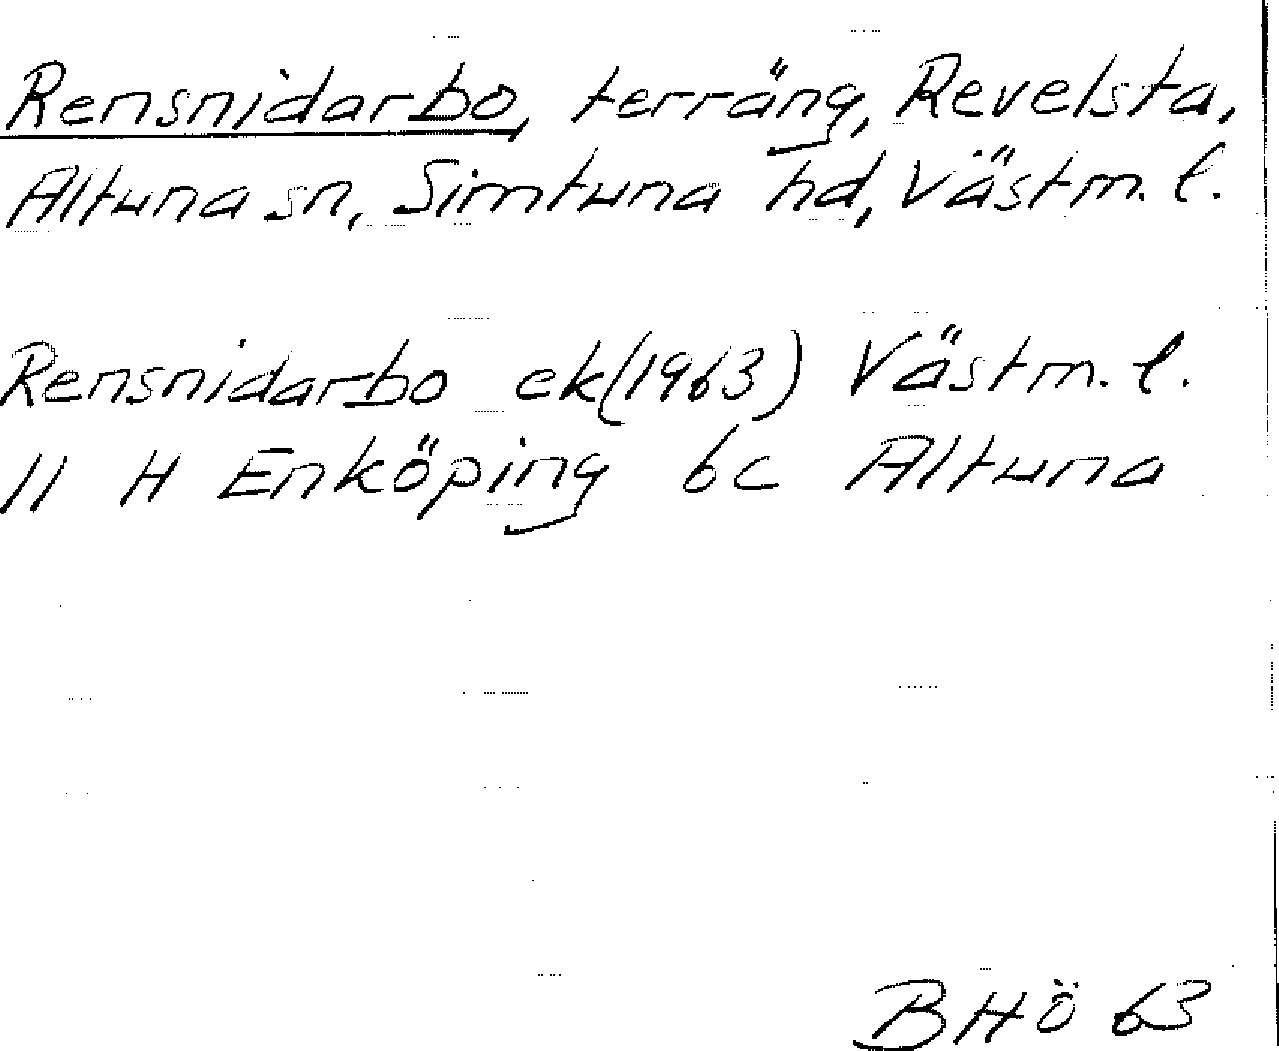 Rensnidarbo, terräng, Revelsta,
Altuna sn, Simtuna hd, Västm. l.
Rensnidarbo ek (1963) Västm. l.
11 H Enköping 6c Altuna
BHÖ 63